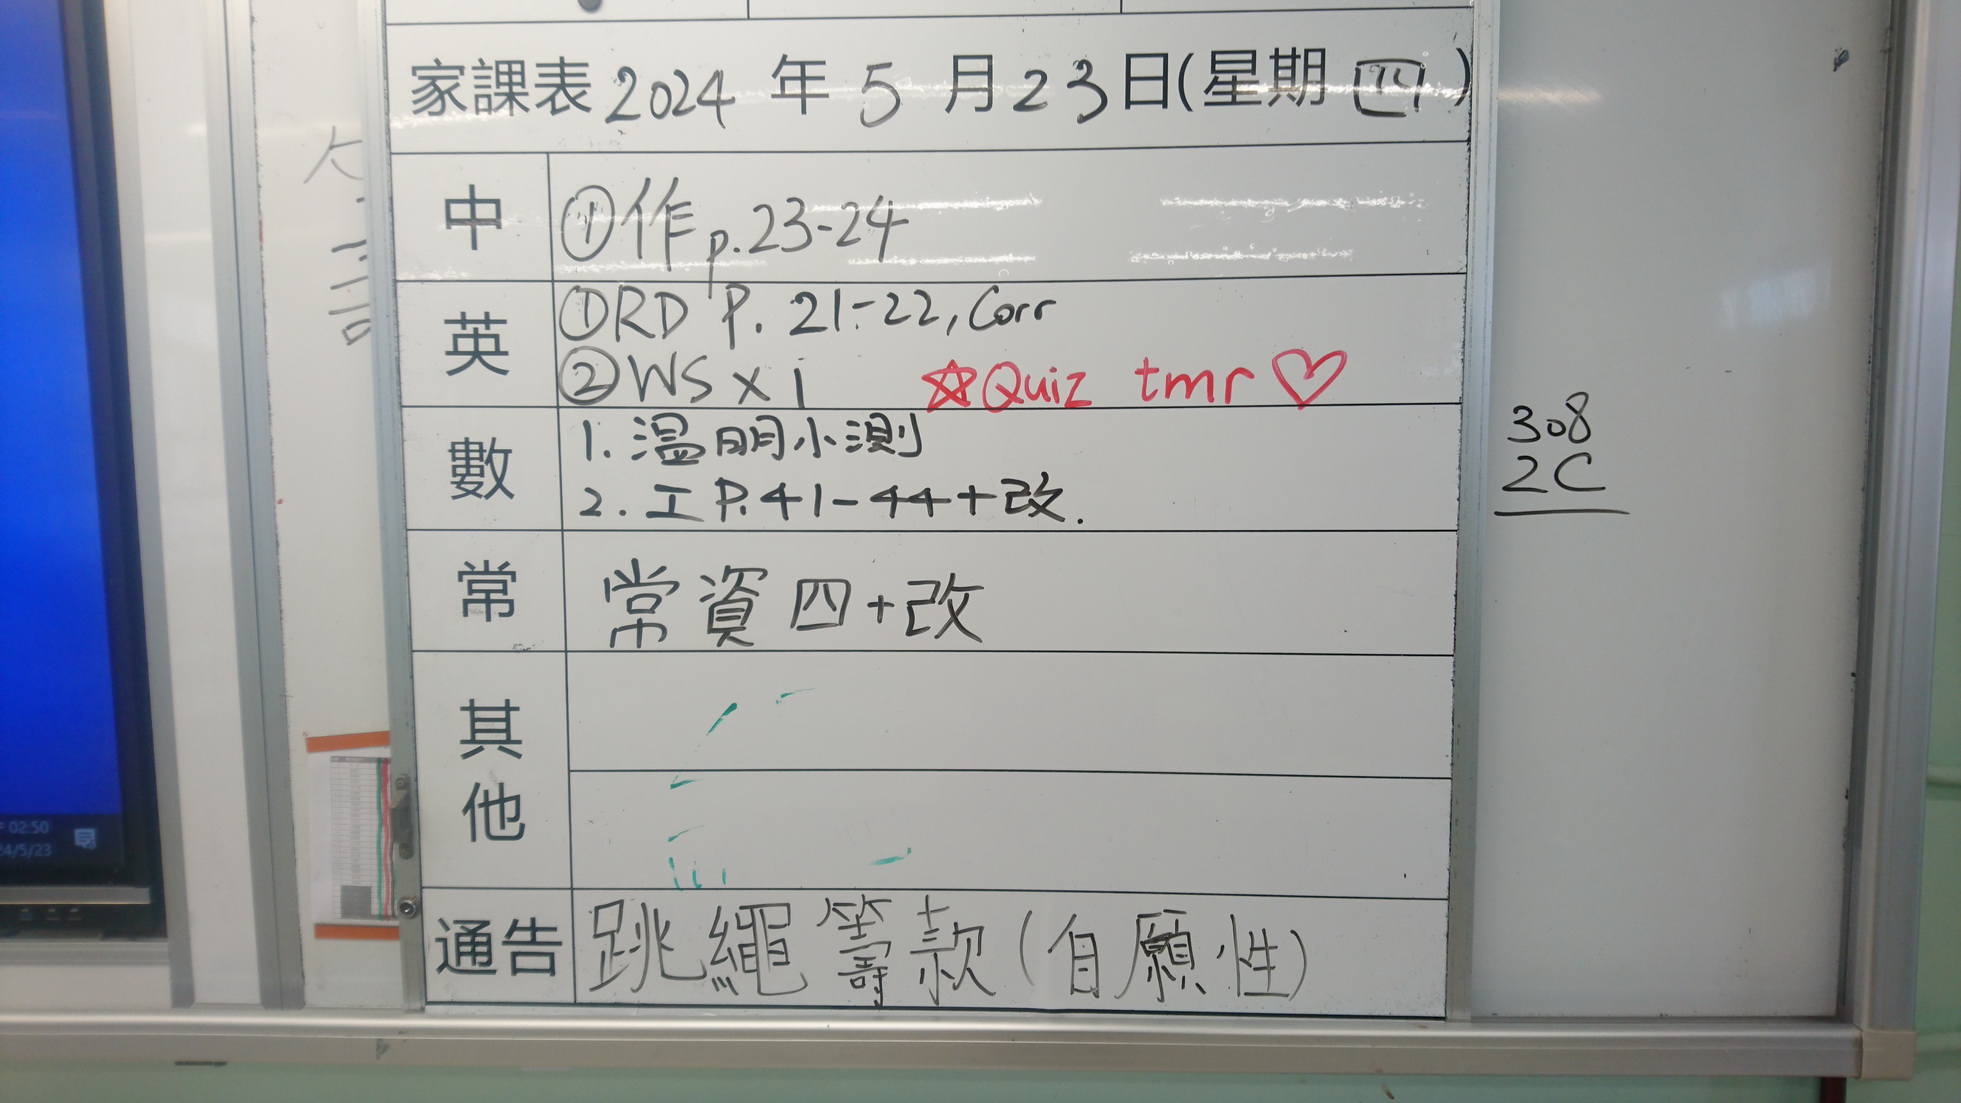 家課表 2024 年 5 月 23 日(星期 四)
中
①作 p.23-24
英
①RD P. 21-22, Corr
②WS x 1 ☆Quiz tmr♡
數
1. 溫明小測
2. 工 P.41-44+改.
常
常資四+改
其他
通告
跳繩籌款(自願性)
308
2C
02:50
24/5/23